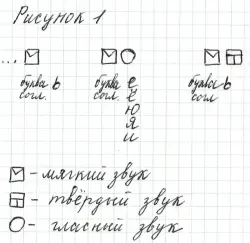 Рисунок 1
...
буква ь буква е буква ь
согл. согл. ё согл.
ю
я
и
- мягкий звук
- твёрдый звук
- гласный звук